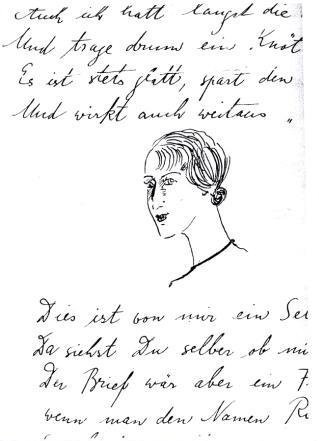 Auch ich hatt längst die
Und trage drum ein "Knöt
Es ist stets glatt, spart den
Und wirkt auch weitaus "
Dies ist von mir ein Sel
Da siehst Du selber ob mi
Der Brief wär aber ein F
wenn man den Namen